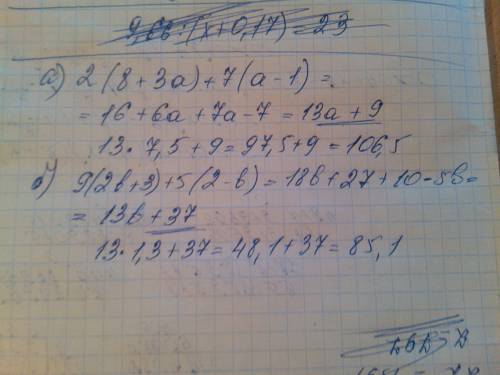 а) 2(8+3a)+7(a-1)=
=16+6a+7a-7=13a+9
13·7,5+9=97,5+9=106,5
б) 9(2b+3)+5(2-b)=18b+27+10-5b=
=13b+37
13·1,3+37=48,1+37=85,1